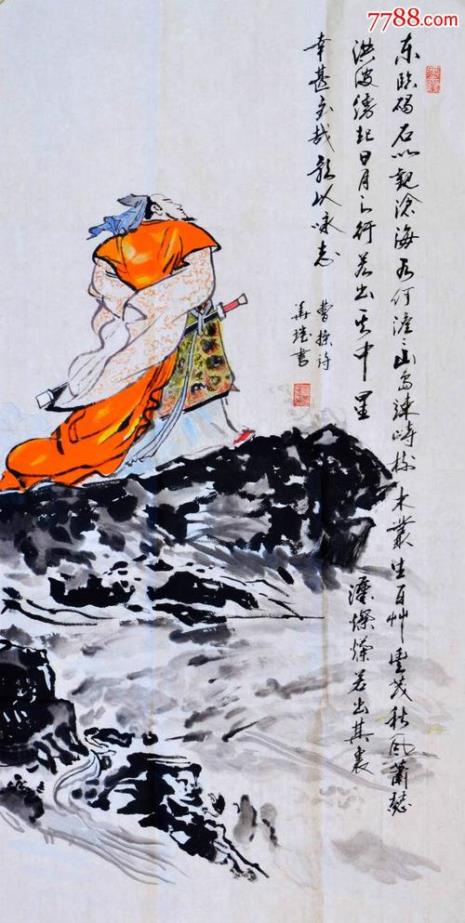 7788.com
东临碣石以观沧海水何澹〻山岛竦峙树木丛生百艸豐茂秋風蕭瑟
洪波涌起日月之行若出其中星漢燦爛若出其裏
幸甚至哉歌以咏志
曹操诗
书